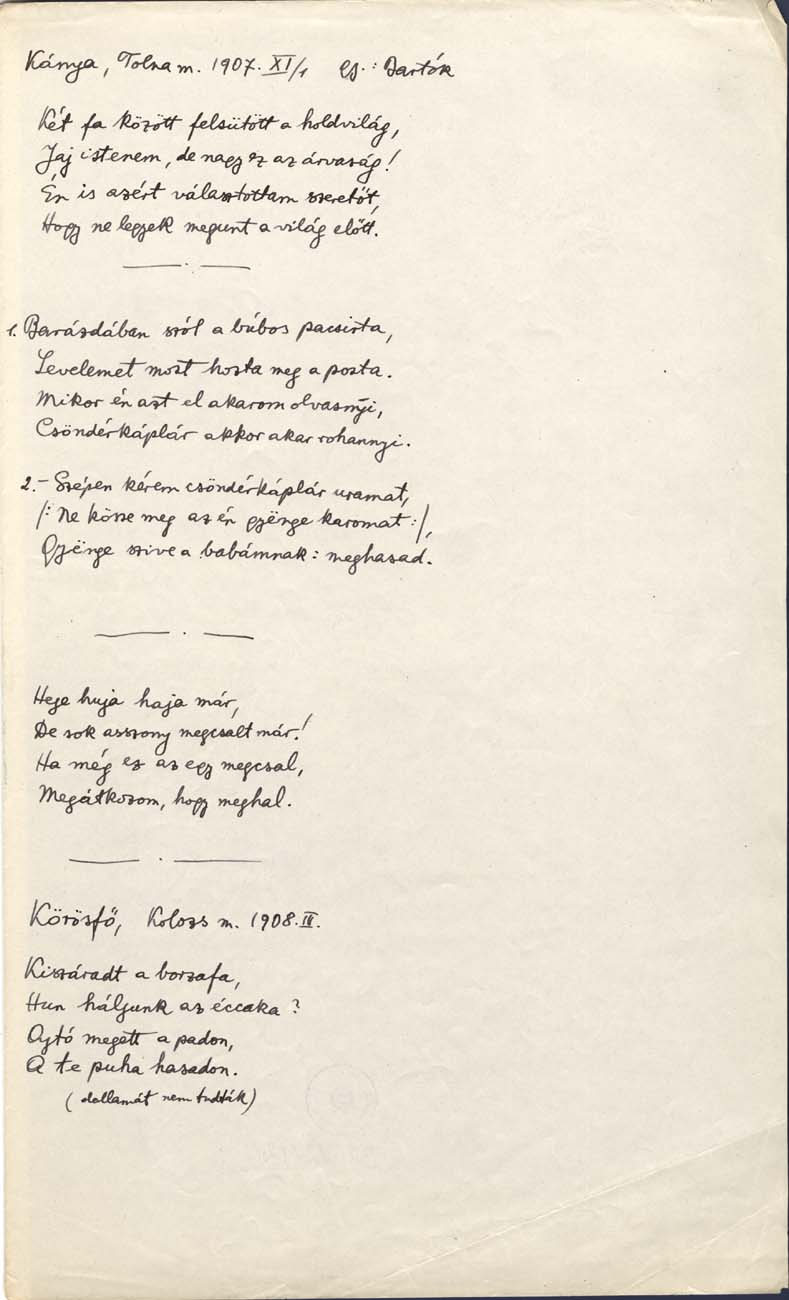 Kánya, Tolna m. 1907. XI/1 Gy.: Bartók
Két fa között felsütött a holdvilág,
Jaj istenem, de nagy ez az árvaság!
Én is azért választottam szeretőt,
Hogy ne legyek megunt a világ előtt.
1. Barázdában szól a búbos pacsirta,
Levelemet most hozta meg a posta.
Mikor én azt el akarom olvasnyi,
Csöndérkáplár akkor akar rohannyi.
2. – Szépen kérem csöndérkáplár uramat,
/: Ne kösse meg az én gyënge karomat :/,
Gyënge szive a babámnak: meghasad.
Heje huja haja már,
De sok asszony megcsalt már!
Ha még ez az egy megcsal,
Megátkozom, hogy meghal.
Körösfő, Kolozs m. 1908.
Kiszáradt a borzafa,
Hun háljunk az éccaka?
Ajtó megett a padon,
A te puha hasadon.
(dallamát nem tudták)